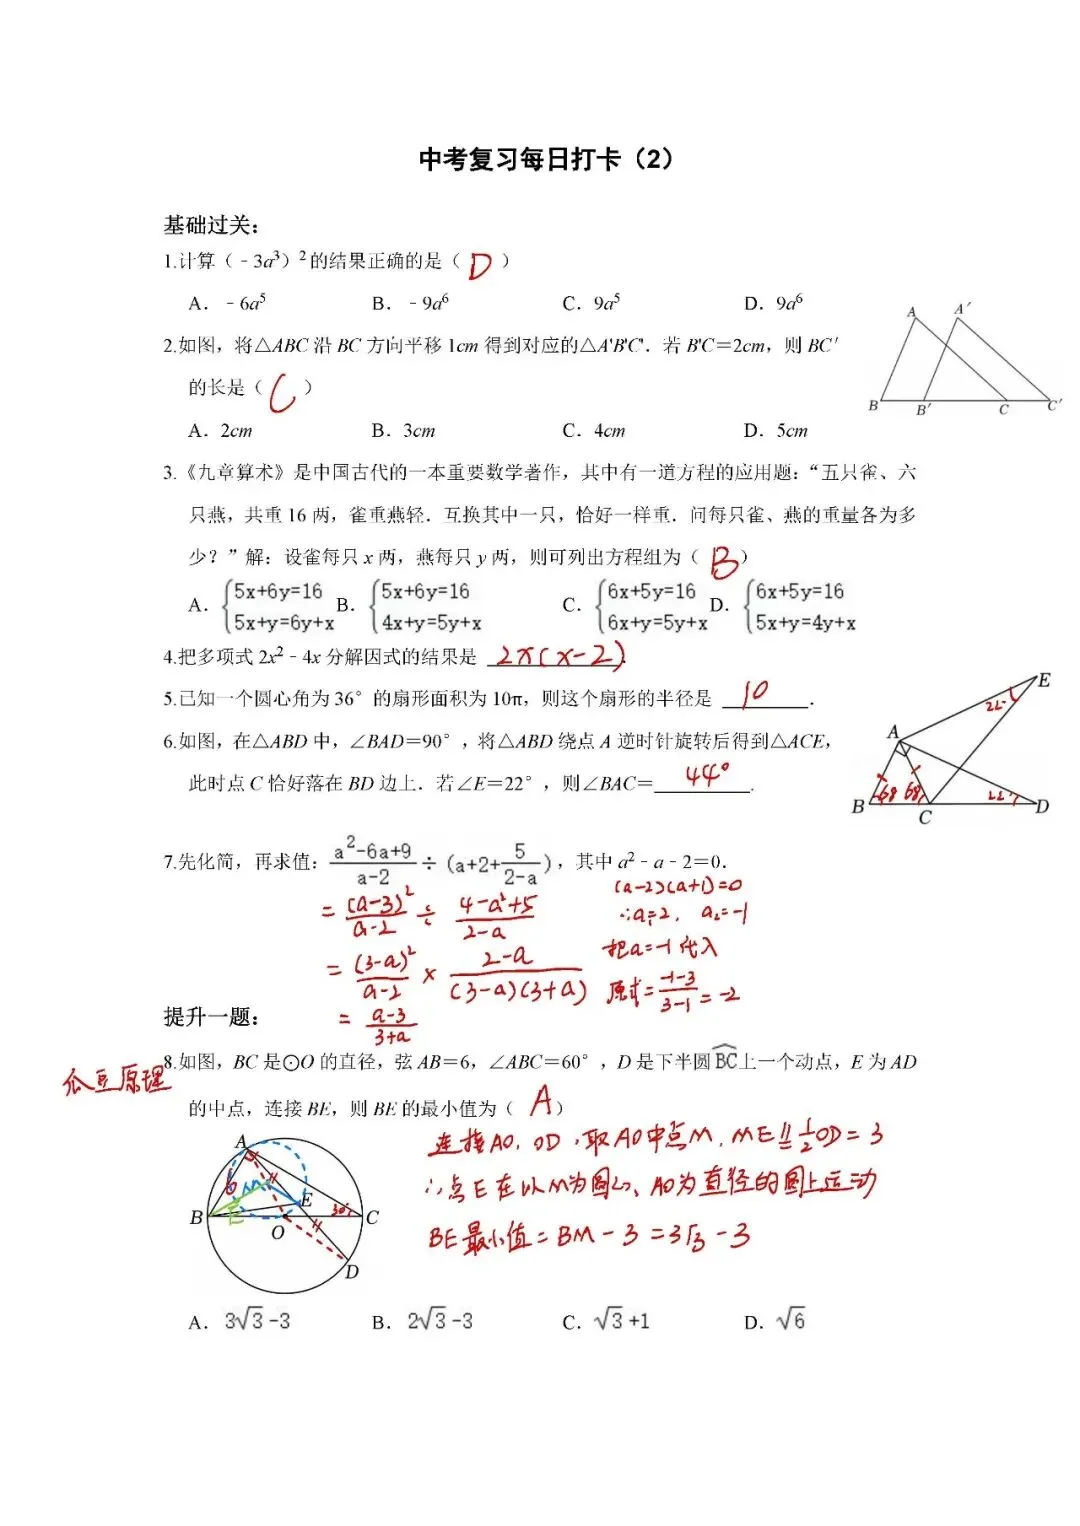 中考复习每日打卡（2）
基础过关：
1.计算（﹣3a³）²的结果正确的是（ D ）
A．﹣6a⁵ B．﹣9a⁶ C．9a⁵ D．9a⁶
2.如图，将△ABC沿BC方向平移1cm得到对应的△A'B'C'．若B'C＝2cm，则BC′
的长是（ C ）
A．2cm B．3cm C．4cm D．5cm
A A′ B B′ C C′
3.《九章算术》是中国古代的一本重要数学著作，其中有一道方程的应用题：“五只雀、六
只燕，共重16两，雀重燕轻．互换其中一只，恰好一样重．问每只雀、燕的重量各为多
少？”解：设雀每只x两，燕每只y两，则可列出方程组为（ B ）
A．{5x+6y=16 B．{5x+6y=16 C．{6x+5y=16 D．{6x+5y=16
5x+y=6y+x 4x+y=5y+x 6x+y=5y+x 5x+y=4y+x
4.把多项式2x²﹣4x分解因式的结果是 2x(x-2).
5.已知一个圆心角为36°的扇形面积为10π，则这个扇形的半径是 10 ．
6.如图，在△ABD中，∠BAD＝90°，将△ABD绕点A逆时针旋转后得到△ACE，
此时点C恰好落在BD边上．若∠E＝22°，则∠BAC＝ 44° .
E 22° A B 68 68 C 22° D
7.先化简，再求值：(a²-6a+9)/(a-2) ÷（a+2+5/(2-a)），其中a²﹣a﹣2＝0．
= (a-3)²/(a-2) ÷ (4-a²+5)/(2-a)
= (3-a)²/(a-2) × (2-a)/((3-a)(3+a))
= (a-3)/(3+a)
(a-2)(a+1)=0
∴a₁=2, a₂=-1
把a=-1代入
原式=(-1-3)/(3-1)=-2
提升一题：
瓜豆原理
8.如图，BC是⊙O的直径，弦AB＝6，∠ABC＝60°，D是下半圆BC上一个动点，E为AD
的中点，连接BE，则BE的最小值为（ A ）
连接AO，OD，取AO中点M，ME∥=½OD=3
∴点E在以M为圆心、AO为直径的圆上运动
BE最小值=BM-3=3√3-3
A 6 M E B O 30° C D
A．3√3-3 B．2√3-3 C．√3+1 D．√6